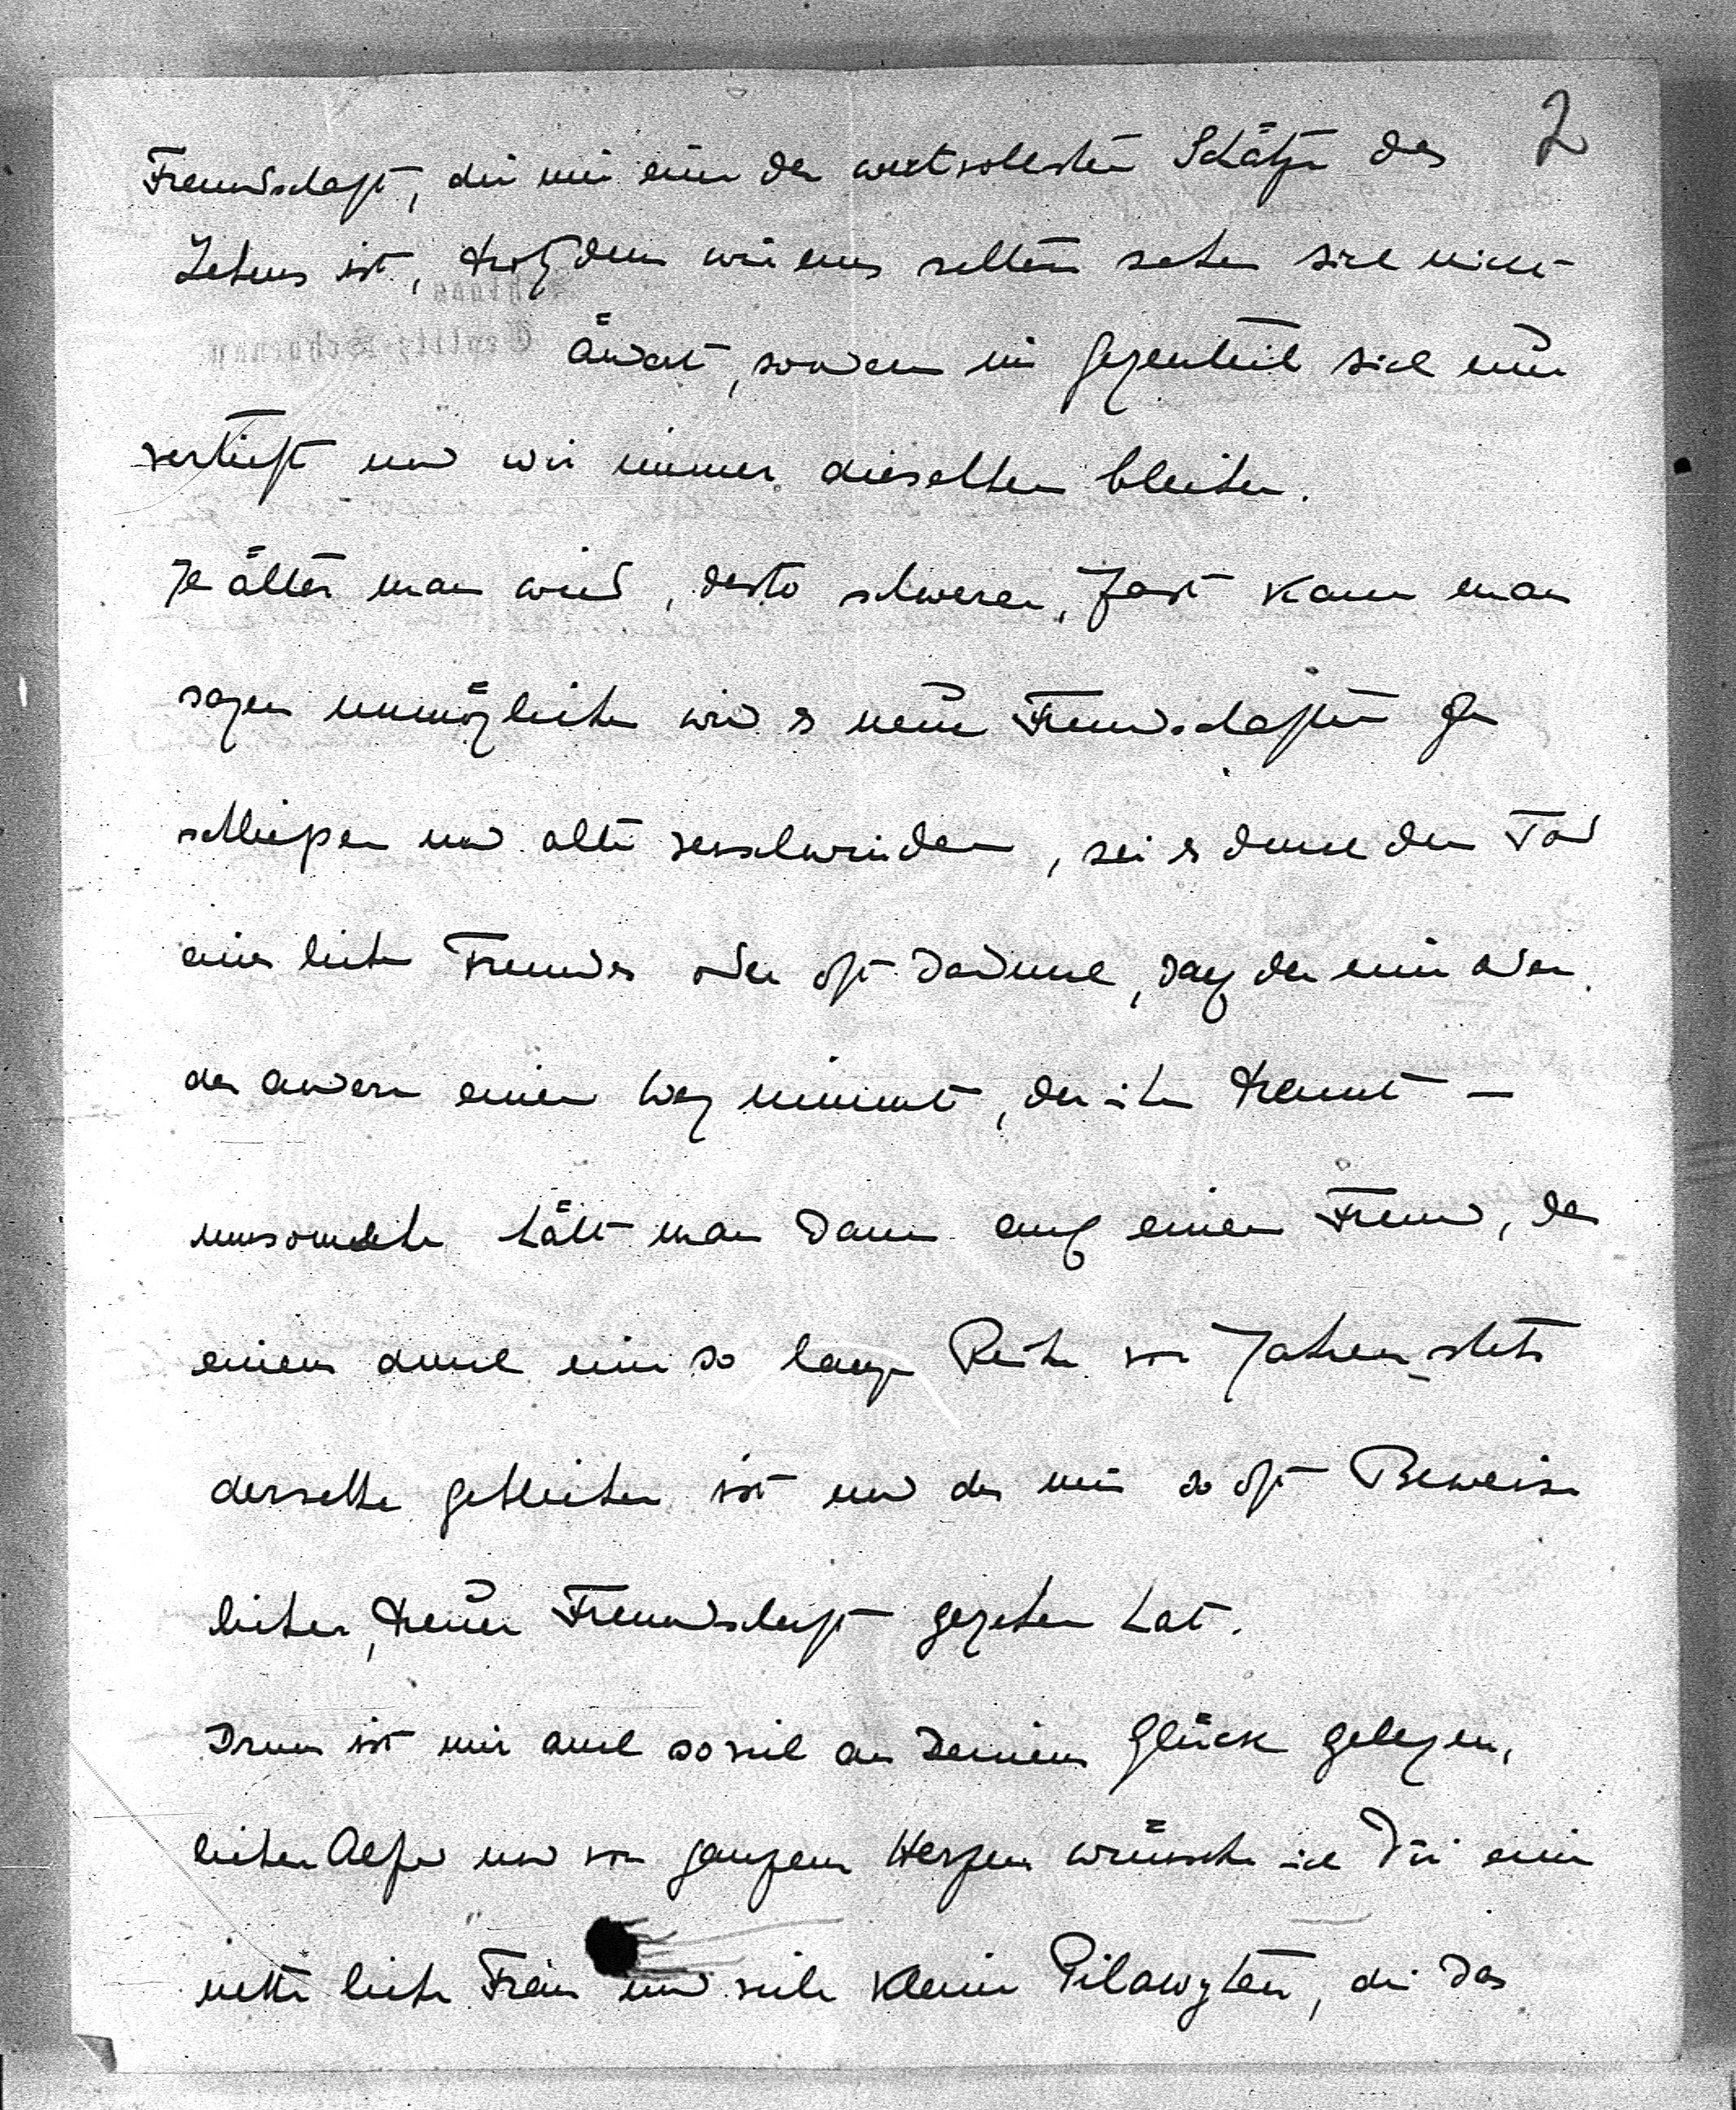 2
Freundschaft, die mir einer der wertvollsten Schätze des
Lebens ist, trotzdem wir uns selten sehen sich nicht
ändert, sondern im Gegenteil sich nur
vertieft und wir immer dieselben bleiben.
Je älter man wird, desto schwerer, fast kann man
sagen unmöglicher wird es neue Freundschaften zu
schließen und alte verschwinden, sei es durch den Tod
eines lieben Freundes oder oft dadurch, daß der eine oder
der andere einen Weg nimmt, der ihn trennt —
umsomehr hält man dann auf einen Freund, der
einem durch eine so lange Reihe von Jahren stets
derselbe geblieben ist und der mir so oft Beweise
lieber, treuer Freundschaft gegeben hat.
Drum ist mir auch soviel an Deinem Glück gelegen,
lieber und von ganzem Herzen wünsche ich Dir eine
nette liebe Frau und viele kleine die das